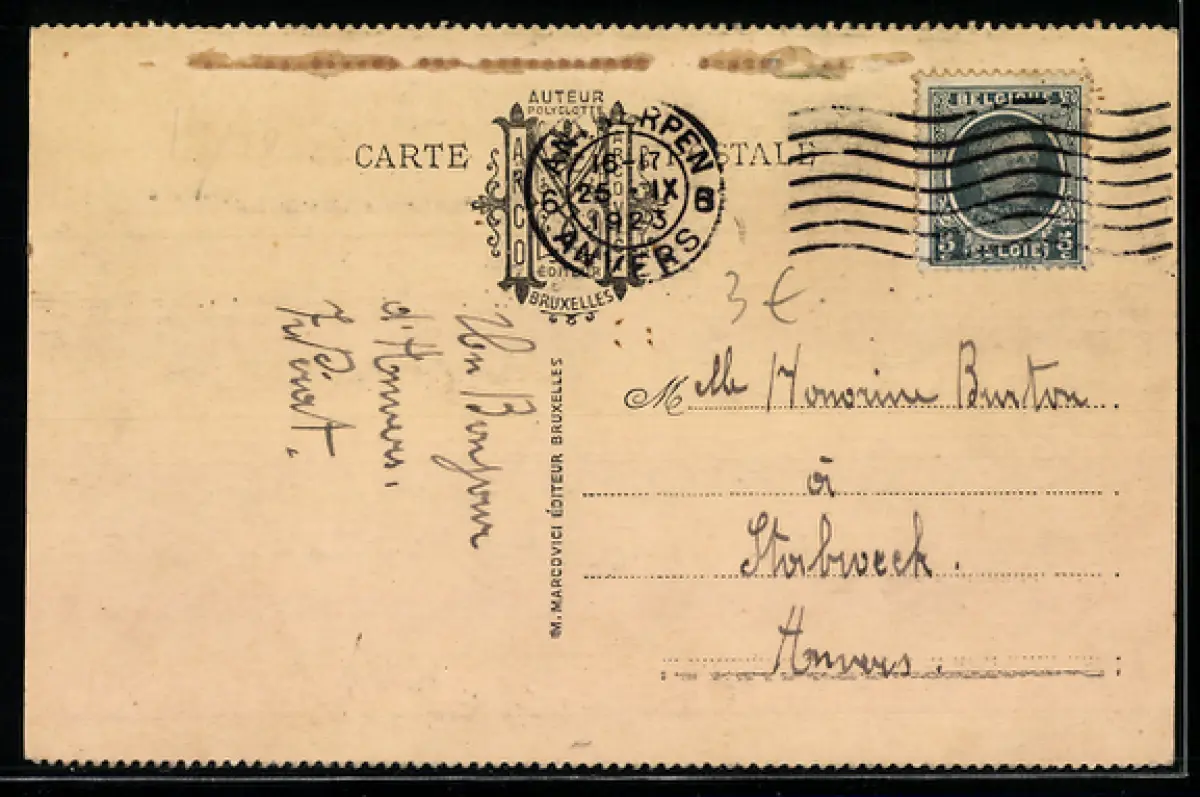 AUTEUR
POLYGLOTTE
CARTE POSTALE
MARCO
ÉDITEUR
BRUXELLES
ANTWERPEN 6
16-17
25 IX
1923
6 ANVERS
BELGIQUE
5 BELGIË 5
3 €
Un Bonjour
d'Anvers.
M. MARCOVICI ÉDITEUR BRUXELLES
Melle Honorine Burton
à
Stabroeck.
Anvers.